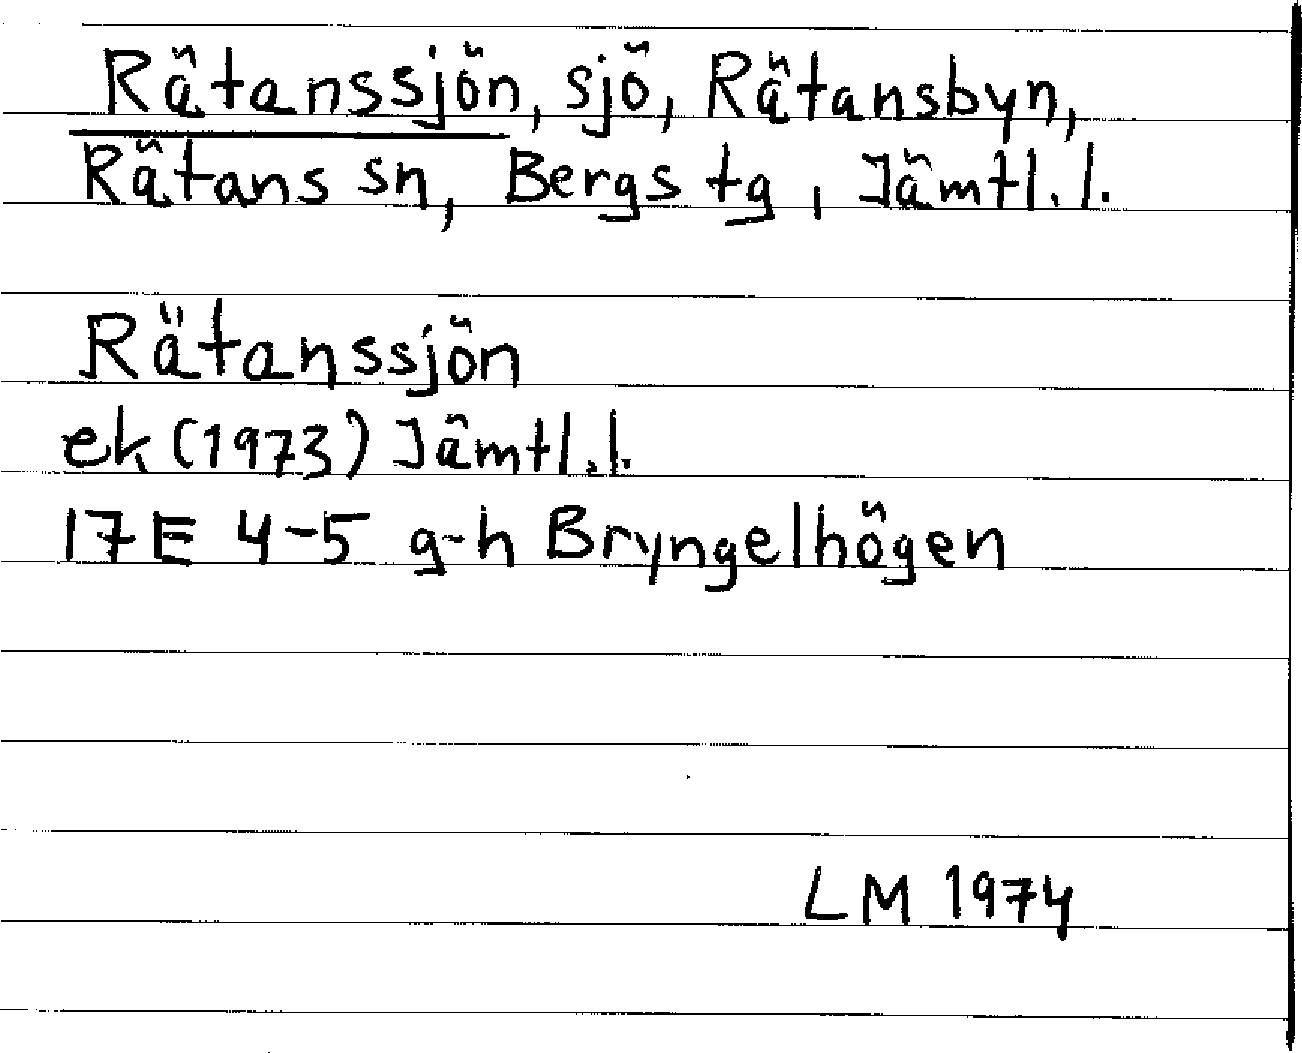 Rätanssjön, sjö, Rätansbyn,
Rätans sn, Bergs tg, Jämtl.l.
Rätanssjön
ek (1973) Jämtl.l.
17E 4-5 g-h Bryngelhögen
LM 1974